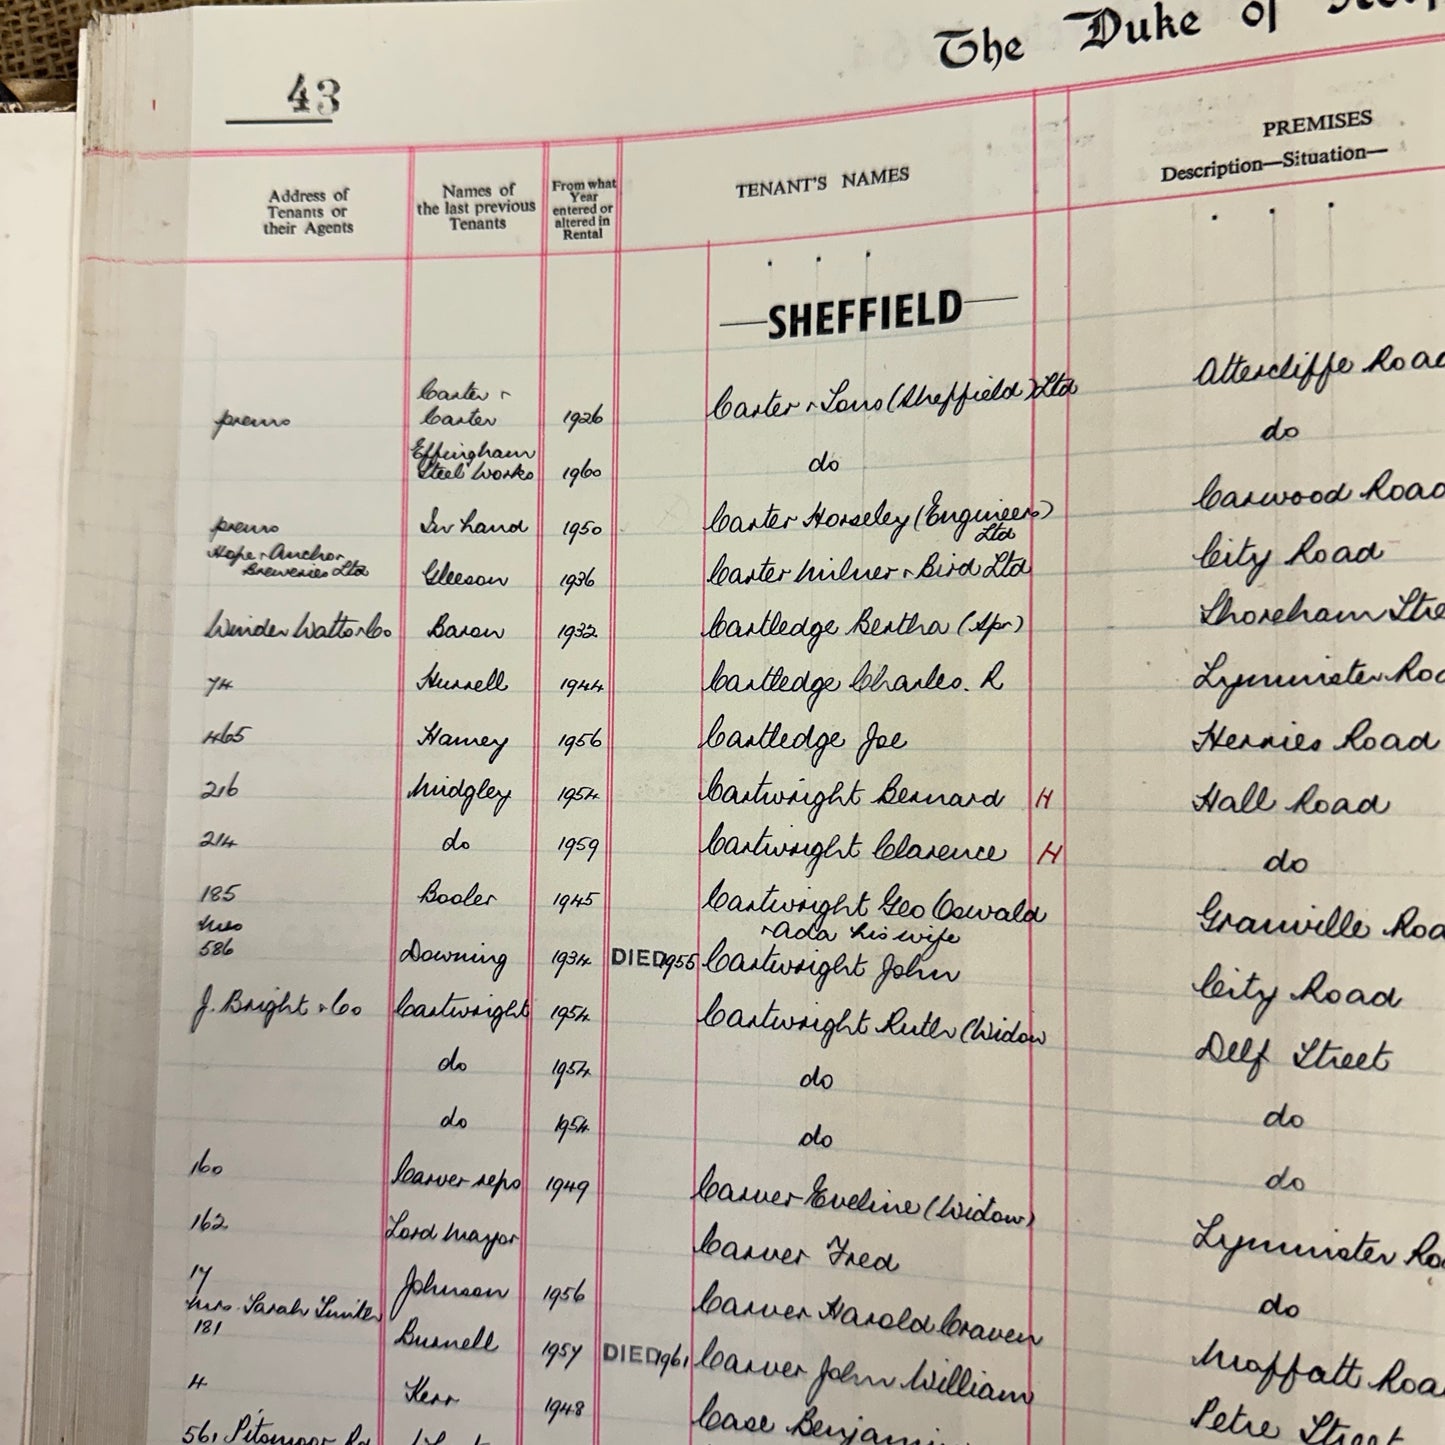 43
The Duke of
Address of Tenants or their Agents
Names of the last previous Tenants
From what Year entered or altered in Rental
TENANT'S NAMES
PREMISES
Description—Situation—
SHEFFIELD
prems Carter & Carter 1926 Carter & Sons (Sheffield) Ltd Attercliffe Road
Effingham Steel Works 1960 do do
prems In hand 1950 Carter Horseley (Engineers) Ltd Carwood Road
Hope & Anchor Breweries Ltd Gleeson 1936 Carter Milner & Bird Ltd City Road
Winder Watts & Co Baron 1932 Cartledge Bertha (Spr) Shoreham Stre
74 Hurrell 1944 Cartledge Charles. R Lymminster Roa
465 Harvey 1956 Cartledge Joe Herries Road
216 Midgley 1954 Cartwright Bernard H Hall Road
214 do 1959 Cartwright Clarence H do
185 Booler 1945 Cartwright Geo Oswald & Ada his wife Granville Roa
Mrs 586 Downing 1934 DIED 1955 Cartwright John City Road
J. Bright & Co Cartwright 1954 Cartwright Ruth (Widow Delf Street
do 1954 do do
do 1954 do do
160 Carver reps 1949 Carver Eveline (Widow) Lymminster Ro
162 Lord Mayor Carver Fred do
17 Johnson 1956 Carver Harold Craven Moffatt Roa
Mrs. Sarah 181 Burnell 1957 DIED 1961 Carver John William Petre Street
4 Kerr 1948 Case Benjamin
561 Pitsmoor Rd